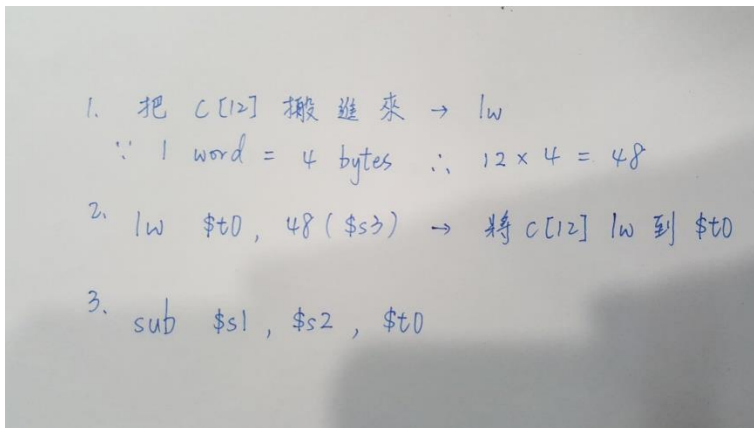 1. 把 C[12] 搬進來 → lw
∵ 1 word = 4 bytes ∴ 12 × 4 = 48
2. lw $t0, 48($s3) → 將 C[12] lw 到 $t0
3. sub $s1, $s2, $t0